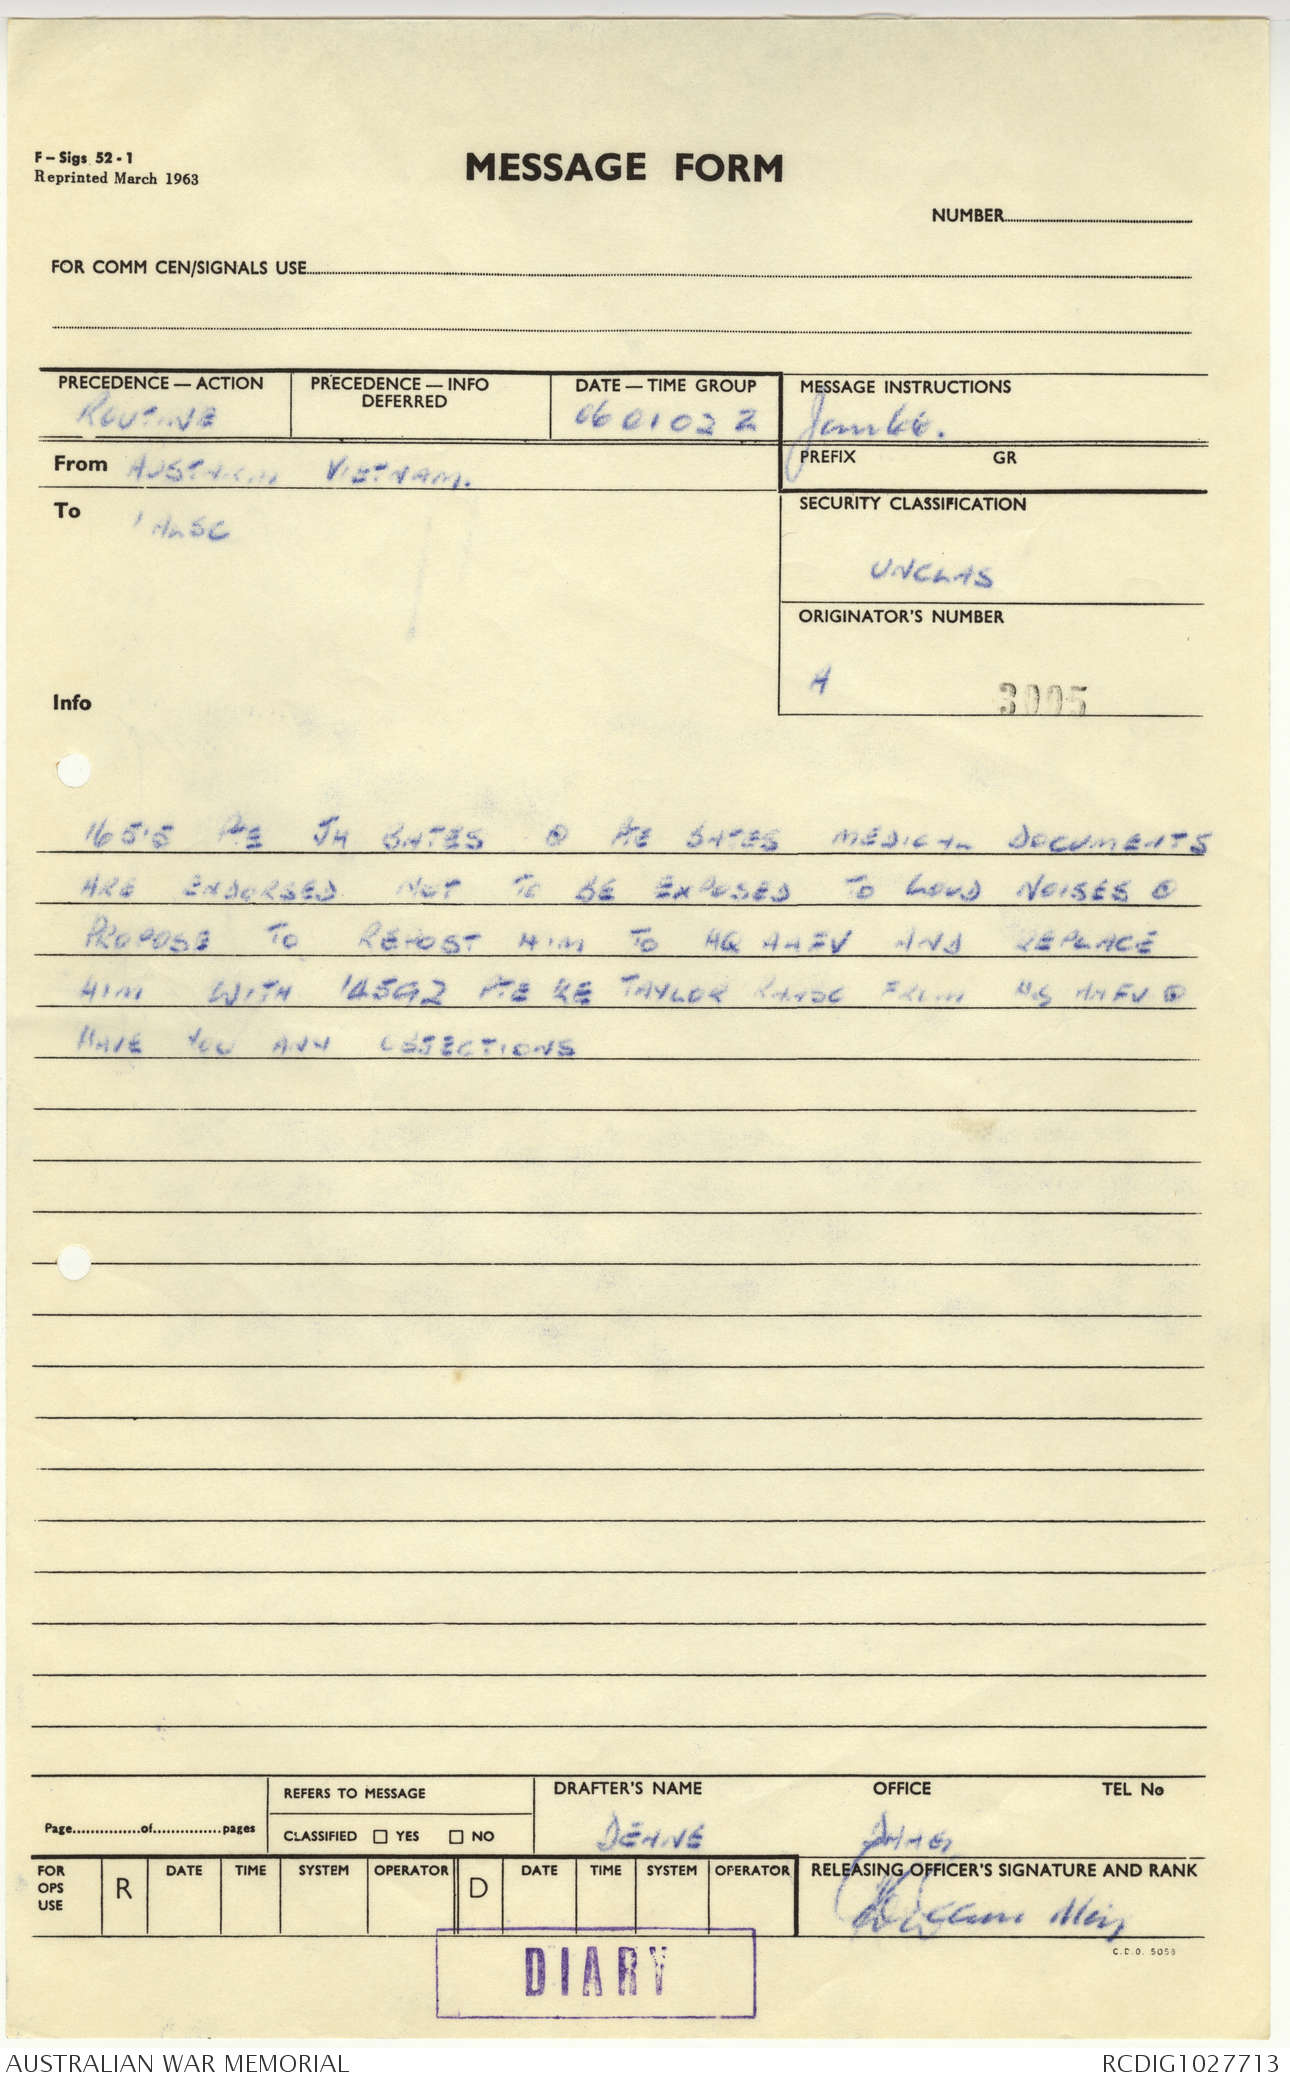 F - Sigs 52 - 1
Reprinted March 1963
MESSAGE FORM
NUMBER
FOR COMM CEN/SIGNALS USE
PRECEDENCE — ACTION
ROUTINE
PRECEDENCE — INFO
DEFERRED
DATE — TIME GROUP
060102 Z
MESSAGE INSTRUCTIONS
Jan 66.
PREFIX GR
From AUSTARM VIETNAM.
To 1 ALSC
SECURITY CLASSIFICATION
UNCLAS
ORIGINATOR'S NUMBER
A 3005
Info
PTE JH BATES @ PTE BATES MEDICAL DOCUMENTS
ARE ENDORSED NOT TO BE EXPOSED TO LOUD NOISES @
PROPOSE TO REPOST HIM TO HQ AAFV AND REPLACE
HIM WITH 14592 PTE RE TAYLOR RAASC FROM HQ AAFV @
HAVE YOU ANY OBJECTIONS
Page...............of...............pages
REFERS TO MESSAGE
CLASSIFIED YES NO
DRAFTER'S NAME
DEANE
OFFICE
DAAG
TEL No
FOR OPS USE
R DATE TIME SYSTEM OPERATOR
D DATE TIME SYSTEM OPERATOR
RELEASING OFFICER'S SIGNATURE AND RANK
Maj
C.D.O. 5056
DIARY
AUSTRALIAN WAR MEMORIAL
RCDIG1027713